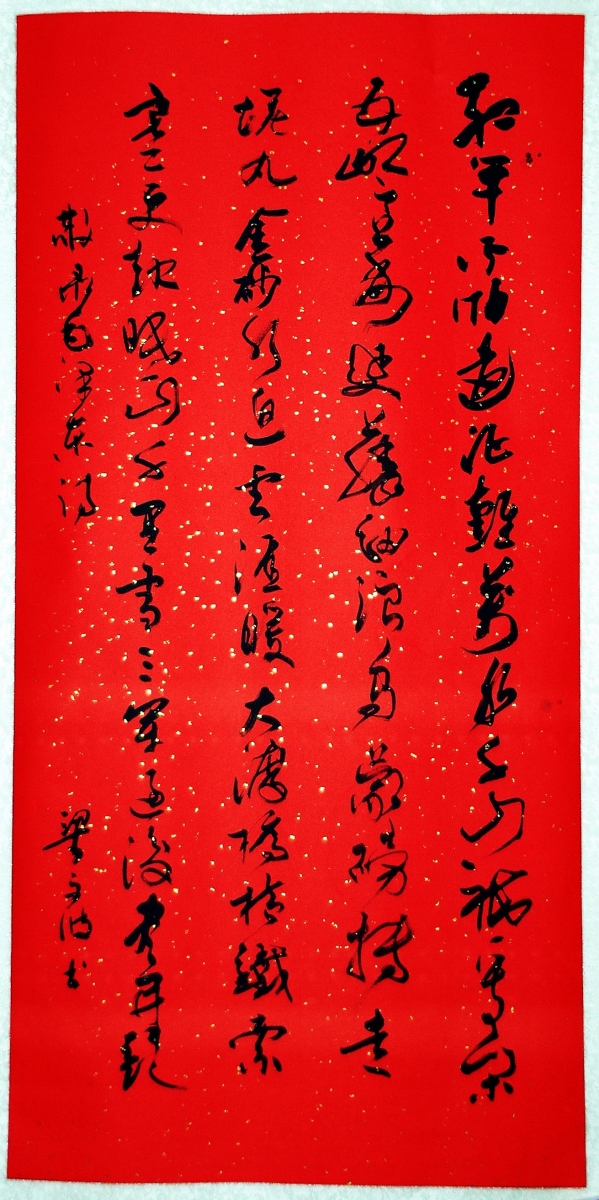 紅軍不怕遠征難萬水千山只等閑
五嶺逶迤騰細浪烏蒙磅礴走
坭丸金砂水拍雲涯暖大渡橋橫鐵索
寒更喜岷山千里雪三軍過後盡開顏
敬录毛泽东诗
梁文波书